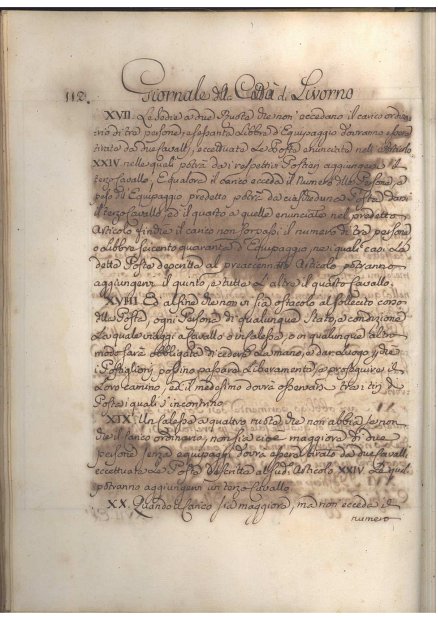 112. Giornale della Città di Livorno
XVII. Le Sedie a due Ruote che non eccedano il carico ordina-
rio di tre persone, e sessanta Libbre d'Equipaggio dovranno essere
tirate da due cavalli, eccettuate le Poste enunciate nell'Articolo
XXIV nelle quali potrà dai respettivi Postieri aggiungersi il
terzo cavallo, E qualora il carico ecceda il numero delle Persone, e
peso d'Equipaggio predetto potrà da ciascheduna Posta darsi
il terzo cavallo, ed il quarto a quelle enunciate nel predetto
Articolo finche il carico non sorpassi il numero di tre persone
o Libbre seicento quaranta d'Equipaggio, ne i quali casi le
dette Poste descritte al preaccennato Articolo potranno
aggiungervi il quinto, e tutte L'altre il quarto Cavallo.
XVIII. E al fine che non vi sia ostacolo al sollecito corso
delle Poste, ogni Persona di qualunque Stato, e condizione
La quale viaggi a cavallo o in calesse, o in qualunque altro
modo sarà obbligata di cedere La mano, e dar Luogo, che
i Postiglioni possino passare Liberamente, e proseguire il
Loro camino, ed il medesimo dovrà osservarsi tra i tiri di
Poste i quali s'incontrino.
XIX. Un calesse a quattro ruote che non abbia se non
che il carico ordinario, non sia cioe maggiore di due
persone senza equipaggi, dovrà essere tirato da due cavalli
eccettuate Le Poste descritte al sud. Articolo XXIV. Le quali
potranno aggiungervi un terzo Cavallo.
XX. Quando il Carico sia maggiore, ma non ecceda il
numero